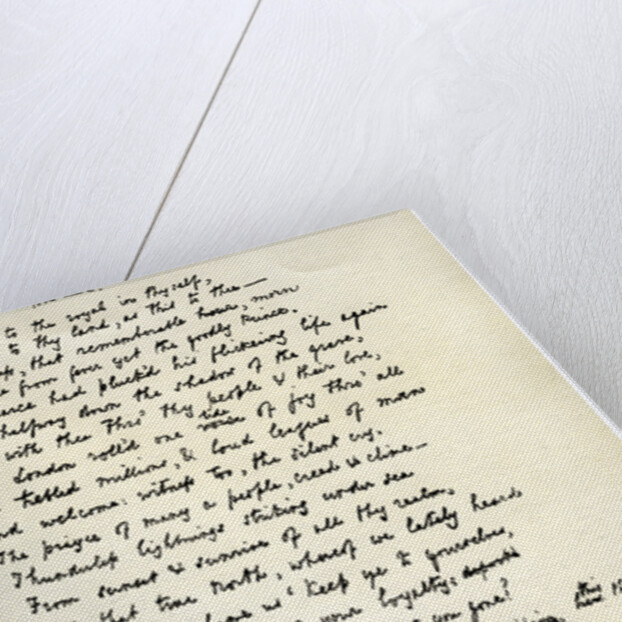 to the royal in thyself,
to thy land, as this to thee—
that remembrable hour, morn
from fever yet the goodly Prince.
had pluck'd his flickering life again
halfway down the shadow of the grave,
with thee thro' thy people & their love,
London roll'd one tide of joy thro' all
trebled millions, & loud leagues of man
welcome: witness too, the silent cry,
The prayer of many a people, creed & clime—
Thunderless lightnings striking under sea
From sunset & sunrise of all thy realm,
that true North, whereof we lately heard
us 'Keep ye to yourselves,
your loyalty:
you gone?
this